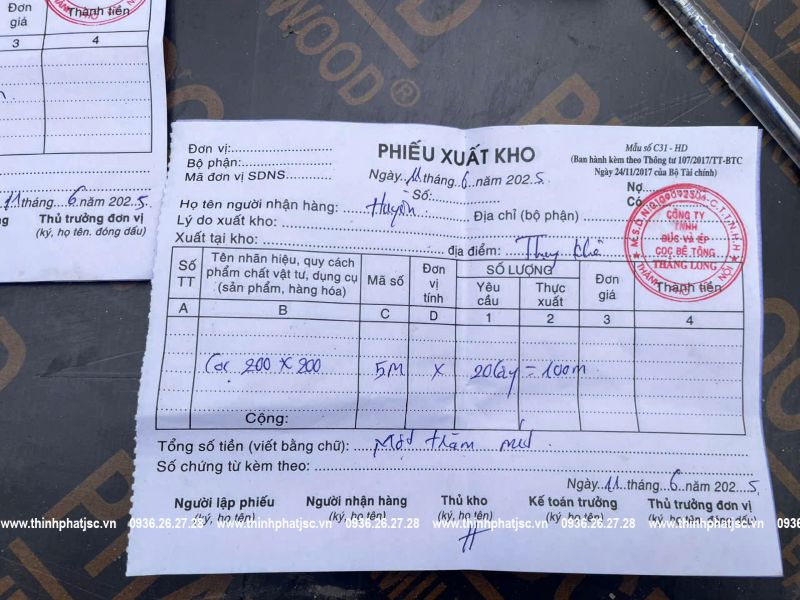 Đơn giá
Thành tiền
3
4
11 tháng 6 năm 2025
Thủ trưởng đơn vị
(ký, họ tên. đóng dấu)
WOOD®
Đơn vị:
Bộ phận:
Mã đơn vị SDNS
PHIẾU XUẤT KHO
Ngày 11 tháng 6 năm 2025
Số:
Mẫu số C31 - HD
(Ban hành kèm theo Thông tư 107/2017/TT-BTC
Ngày 24/11/2017 của Bộ Tài chính)
Nợ
Có
Họ tên người nhận hàng: Huyên
Địa chỉ (bộ phận)
Lý do xuất kho:
Xuất tại kho: địa điểm: Thụy Khê
CÔNG TY
TNHH
ĐÚC VÀ ÉP
CỌC BÊ TÔNG
THĂNG LONG
Số TT
Tên nhãn hiệu, quy cách phẩm chất vật tư, dụng cụ (sản phẩm, hàng hóa)
Mã số
Đơn vị tính
SỐ LƯỢNG
Yêu cầu
Thực xuất
Đơn giá
Thành tiền
A B C D 1 2 3 4
Cọc 200 x 200 5M x 20 Cây = 100m
Cộng:
Tổng số tiền (viết bằng chữ): Một trăm mét
Số chứng từ kèm theo:
Ngày 11 tháng 6 năm 2025
Người lập phiếu Người nhận hàng Thủ kho Kế toán trưởng Thủ trưởng đơn vị
(ký, họ tên) (ký, họ tên) (ký, họ tên) (ký, họ tên) (ký, họ tên, đóng dấu)
www.thinhphatjsc.vn 0936.26.27.28 www.thinhphatjsc.vn 0936.26.27.28 www.thinhphatjsc.vn 0936.26.27.28